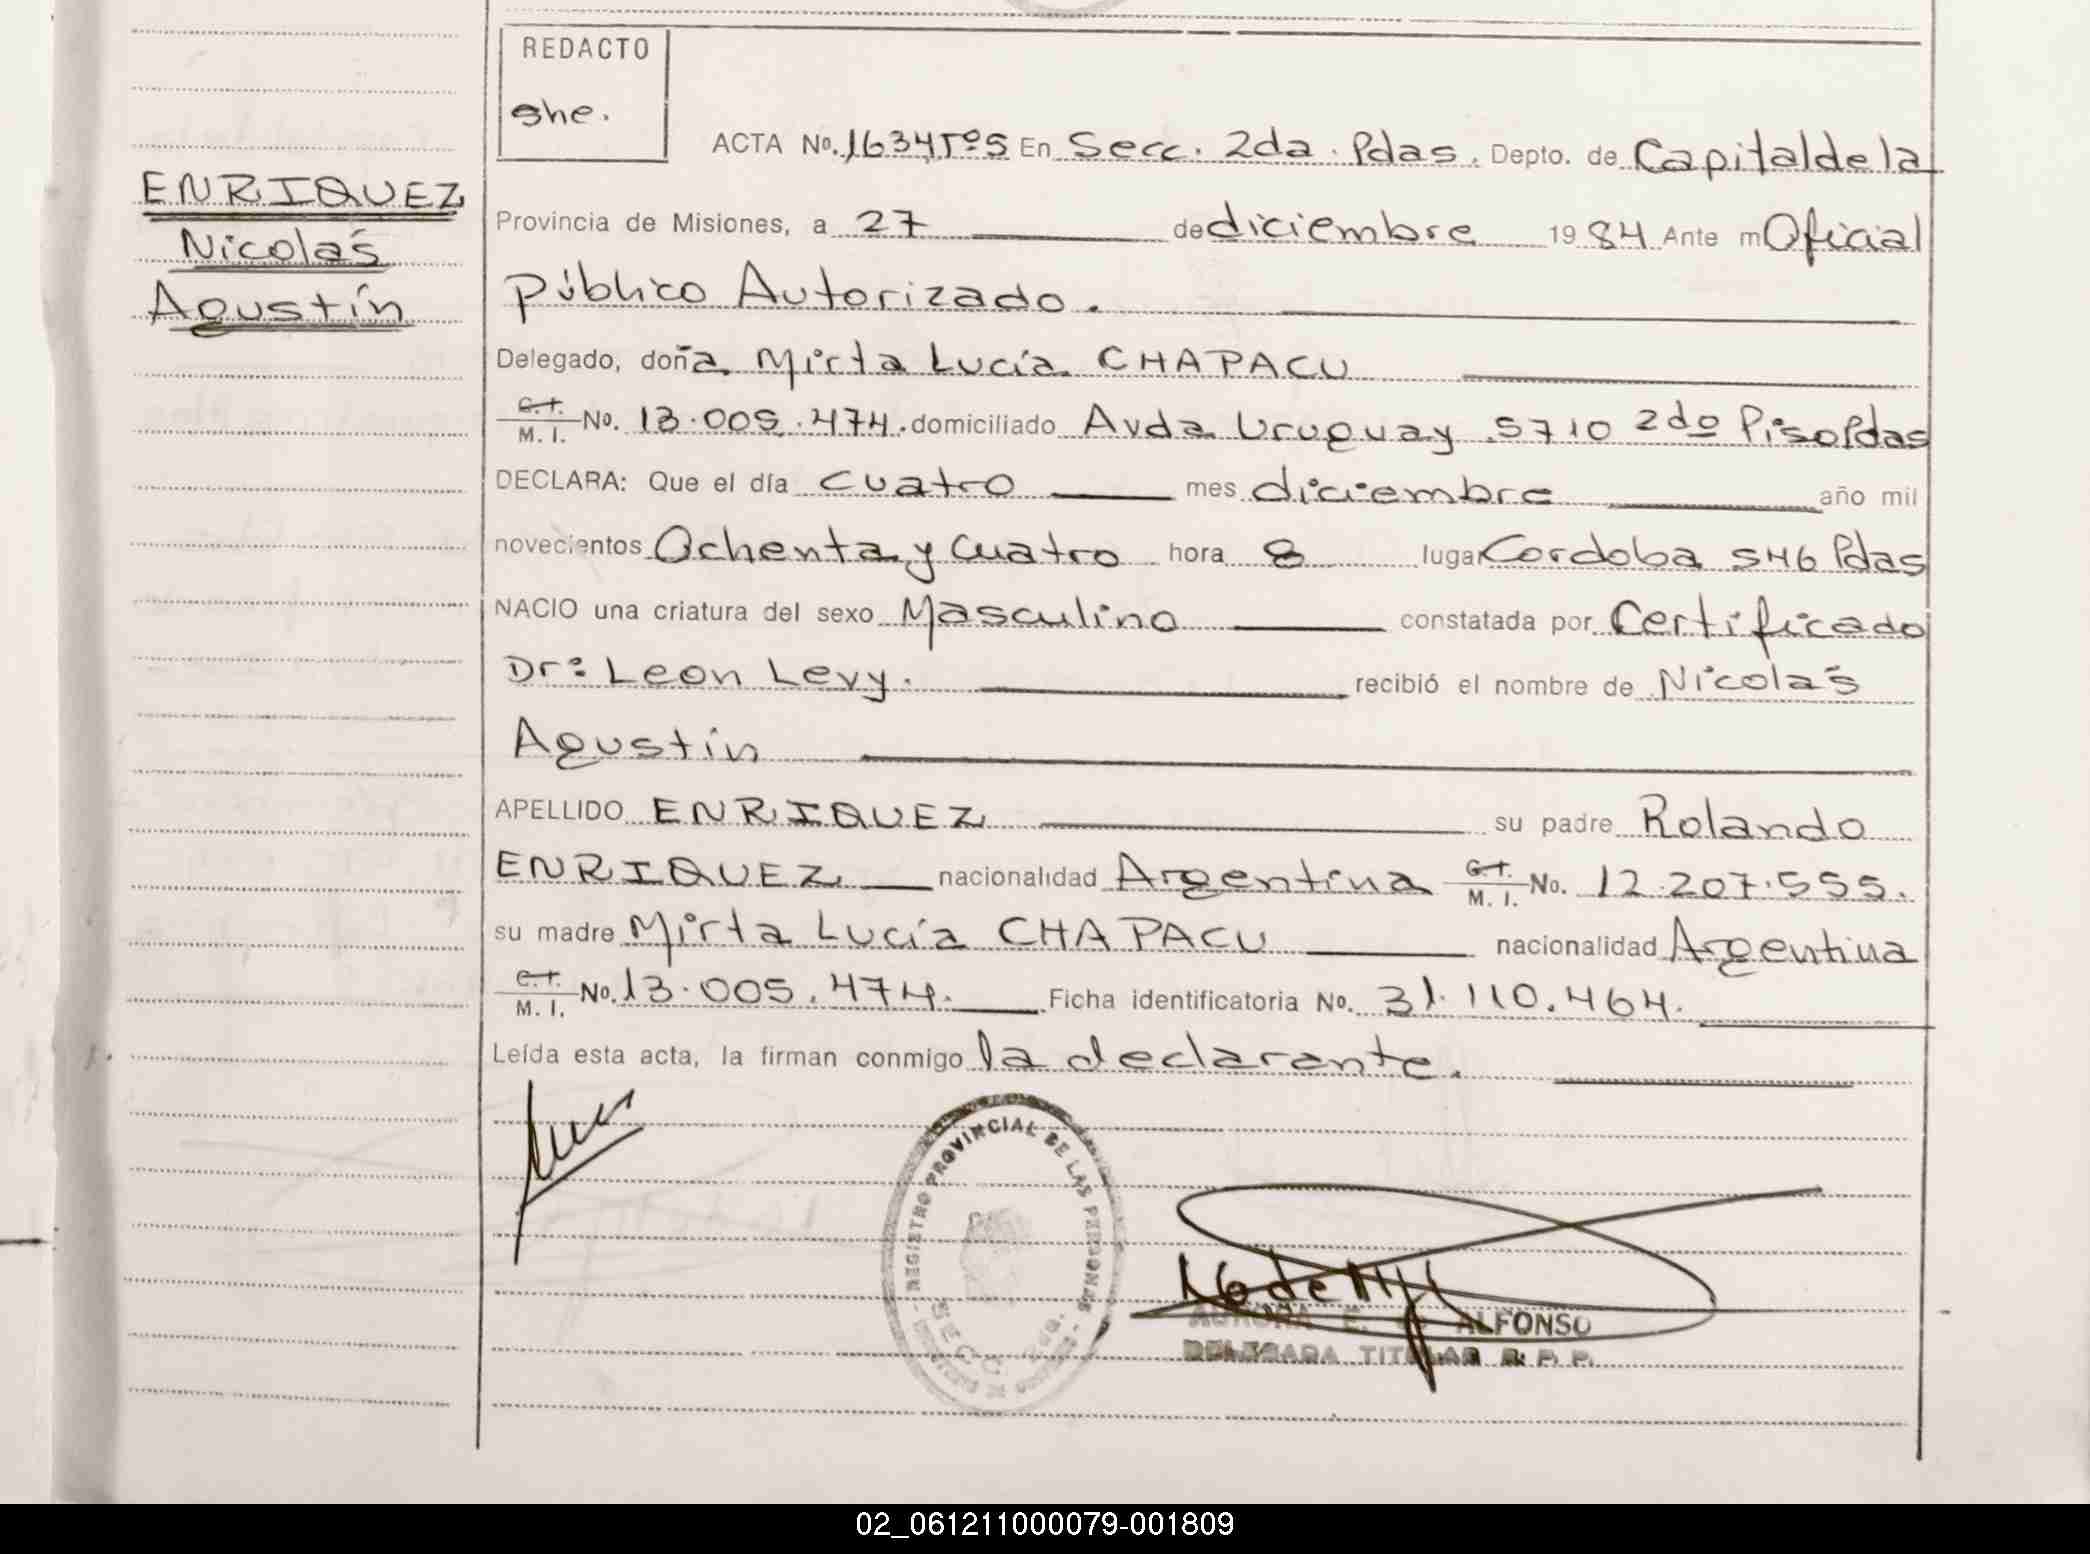 REDACTO
she.
ACTA No. 1634Tº5 En Secc. 2da. Pdas. Depto. de Capital de la
ENRIQUEZ
Nicolás
Agustín
Provincia de Misiones, a 27 de diciembre 1984 Ante m Oficial
Público Autorizado.
Delegado, doña Mirta Lucía CHAPACU
C.I. / M. I. No. 13.005.474. domiciliado Avda Uruguay 5710 2do Piso Pdas
DECLARA: Que el día cuatro mes diciembre año mil
novecientos Ochenta y Cuatro hora 8 lugar Cordoba 546 Pdas
NACIO una criatura del sexo Masculino constatada por Certificado
Dr: Leon Levy. recibió el nombre de Nicolás
Agustín
APELLIDO ENRIQUEZ su padre Rolando
ENRIQUEZ nacionalidad Argentina C.I. / M. I. No. 12.207.555.
su madre Mirta Lucía CHAPACU nacionalidad Argentina
C.I. / M. I. No. 13.005.474. Ficha identificatoria No. 31.110.464.
Leída esta acta, la firman conmigo la declarante.
REGISTRO PROVINCIAL DE LAS PERSONAS
SECC. 2da.
AURORA E. ALFONSO
DELEGADA TITULAR R.P.P.
02_061211000079-001809